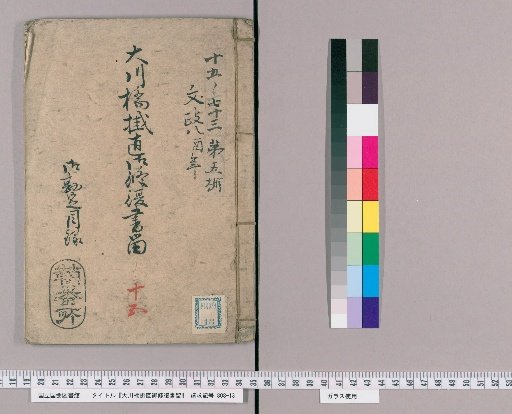 十五ノ七十三 第五棚
文政八酉年
大川橋掛直御修復書留
御勘定目録
十五
国立国会図書館 タイトル『大川橋掛直御修復書留』 請求記号 808-13
ガラス使用